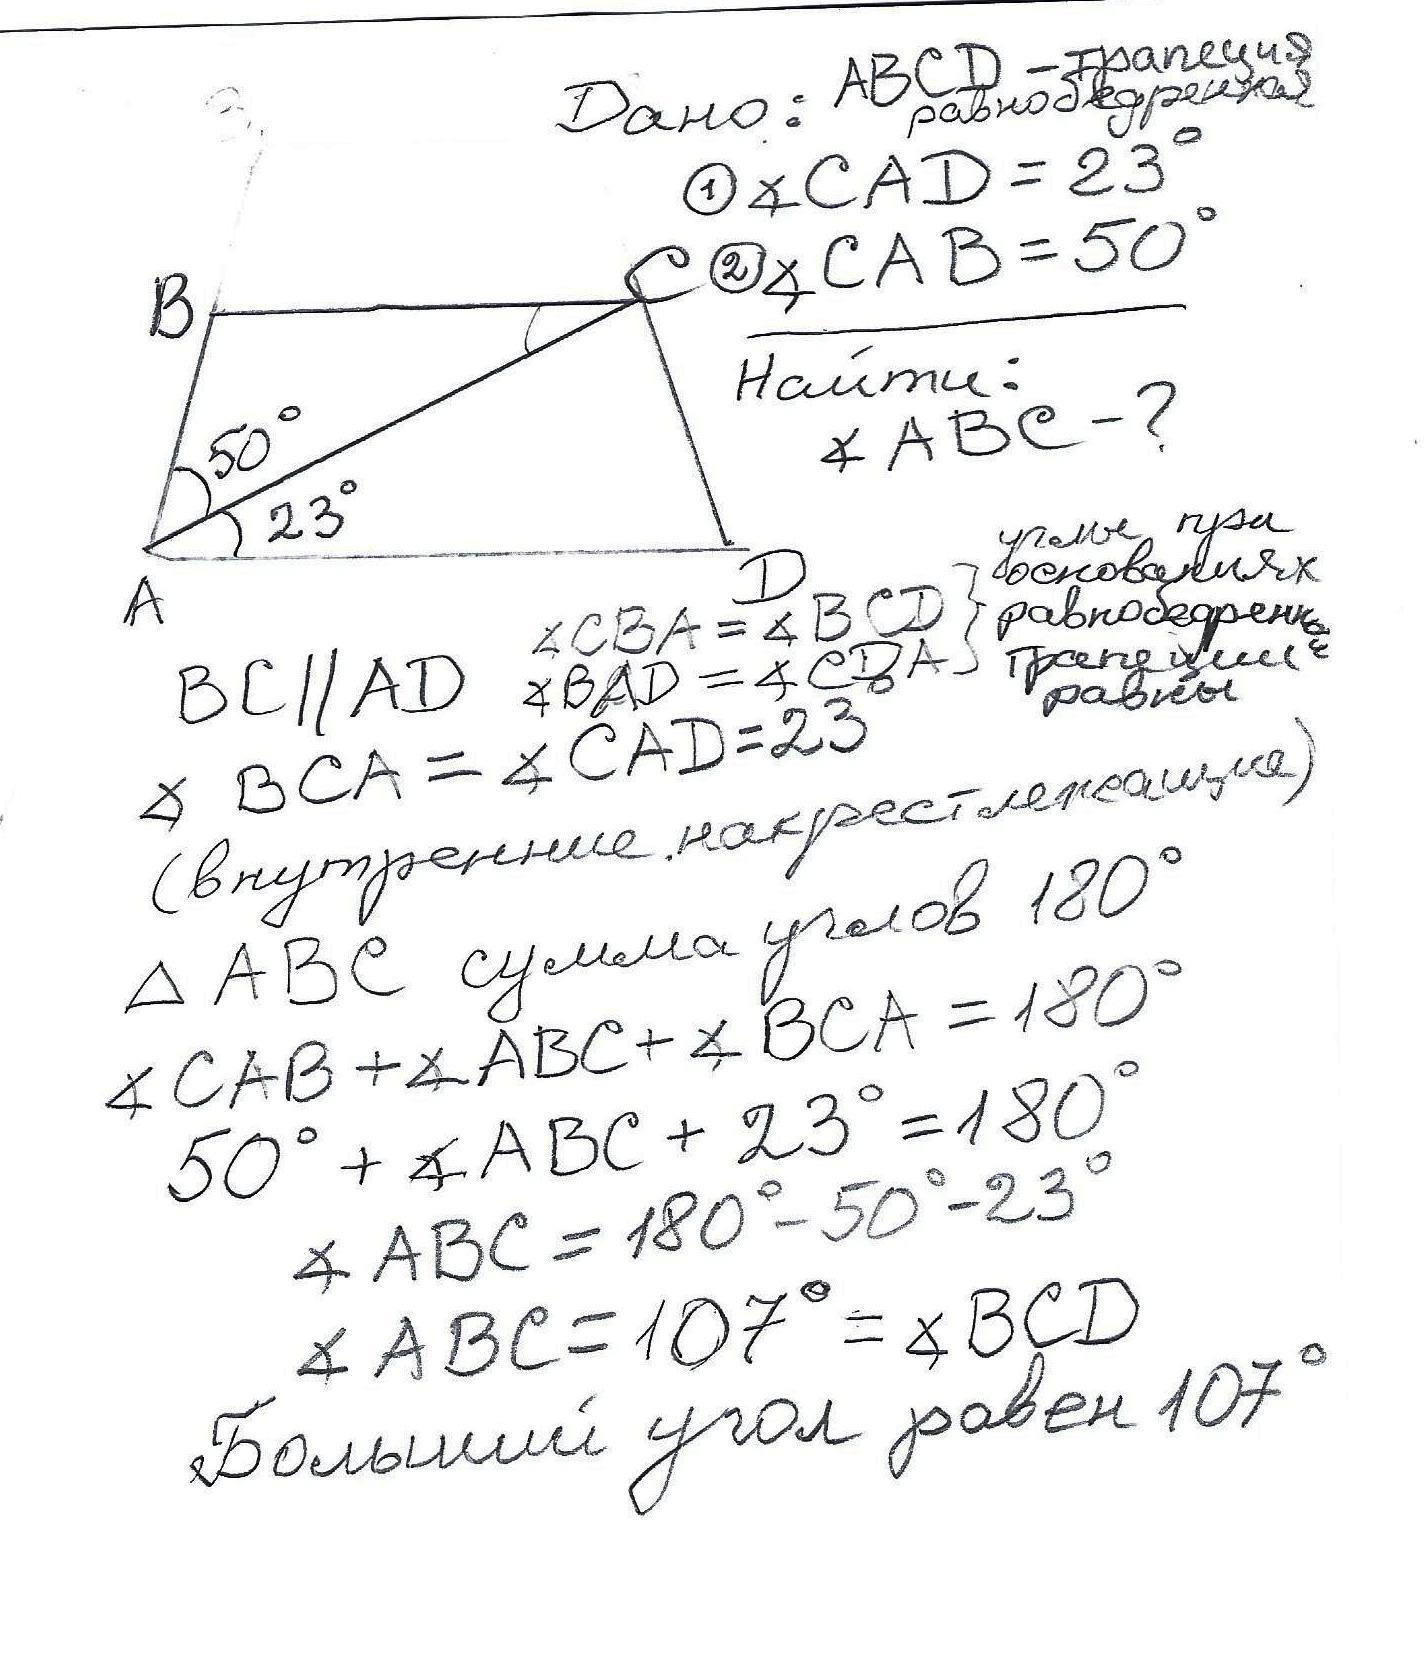 Дано: ABCD - трапеция
равнобедренная
① ∡CAD = 23°
② ∡CAB = 50°
Найти:
∡ABC - ?
B
C
50°
23°
A
D
∡CBA = ∡BCD
∡BAD = ∡CDA
углы при
основаниях
равнобедренные
трапеции
равны
BC || AD
∡BCA = ∡CAD = 23°
(внутренние накрестлежащие)
△ABC сумма углов 180°
∡CAB + ∡ABC + ∡BCA = 180°
50° + ∡ABC + 23° = 180°
∡ABC = 180° - 50° - 23°
∡ABC = 107° = ∡BCD
Больший угол равен 107°